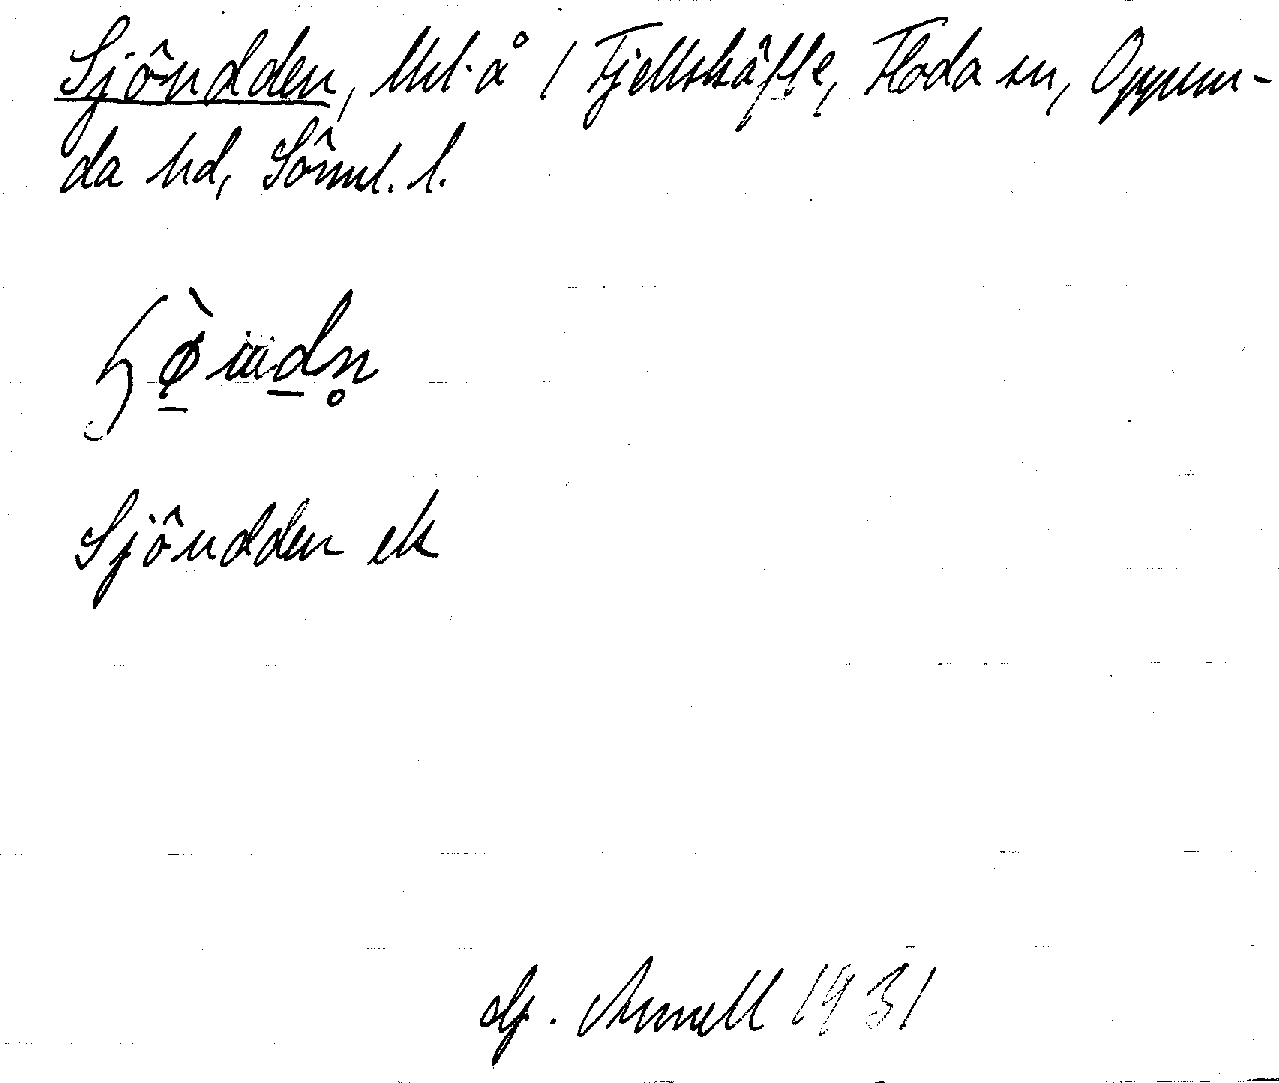 Sjöudden, Utl. å / Fjellskäfte, Floda sn, Oppun-
da hd, Söml. l.
Sjöudden ek
Gj. Annell 1931